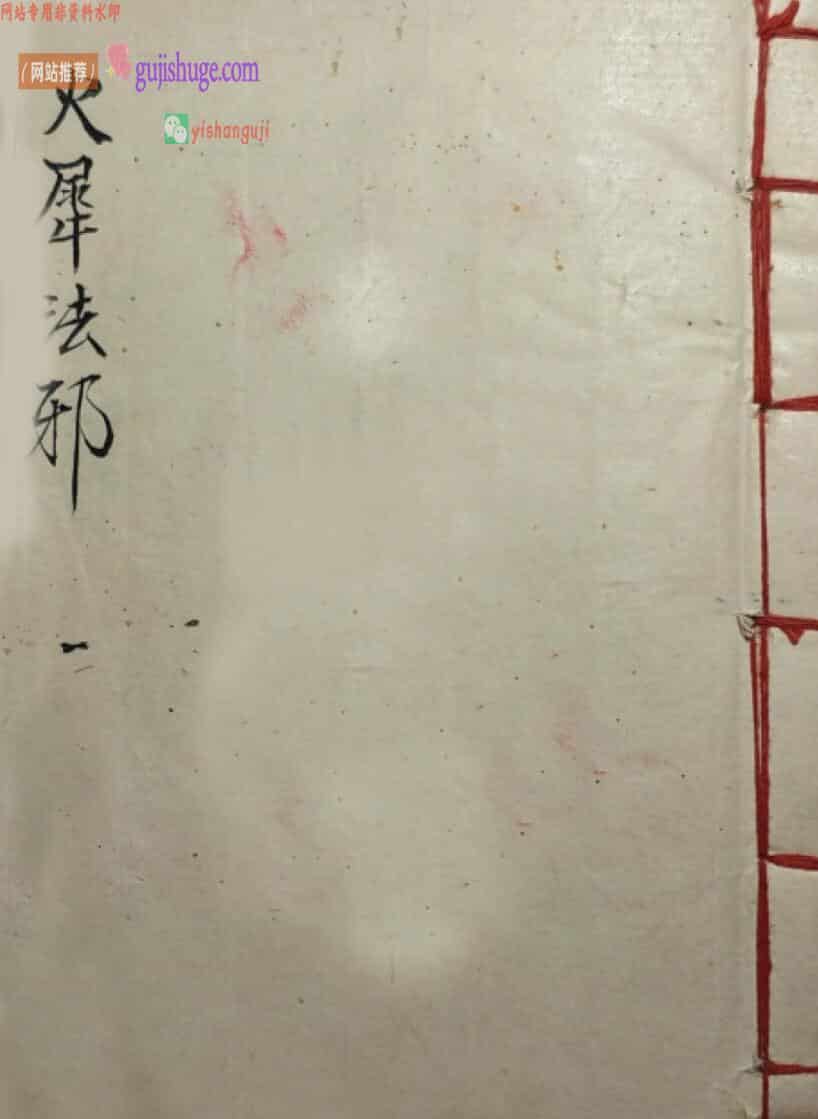 网站专用非资料水印
(网站推荐)
gujishuge.com
yishanguji
火犀法邪
一